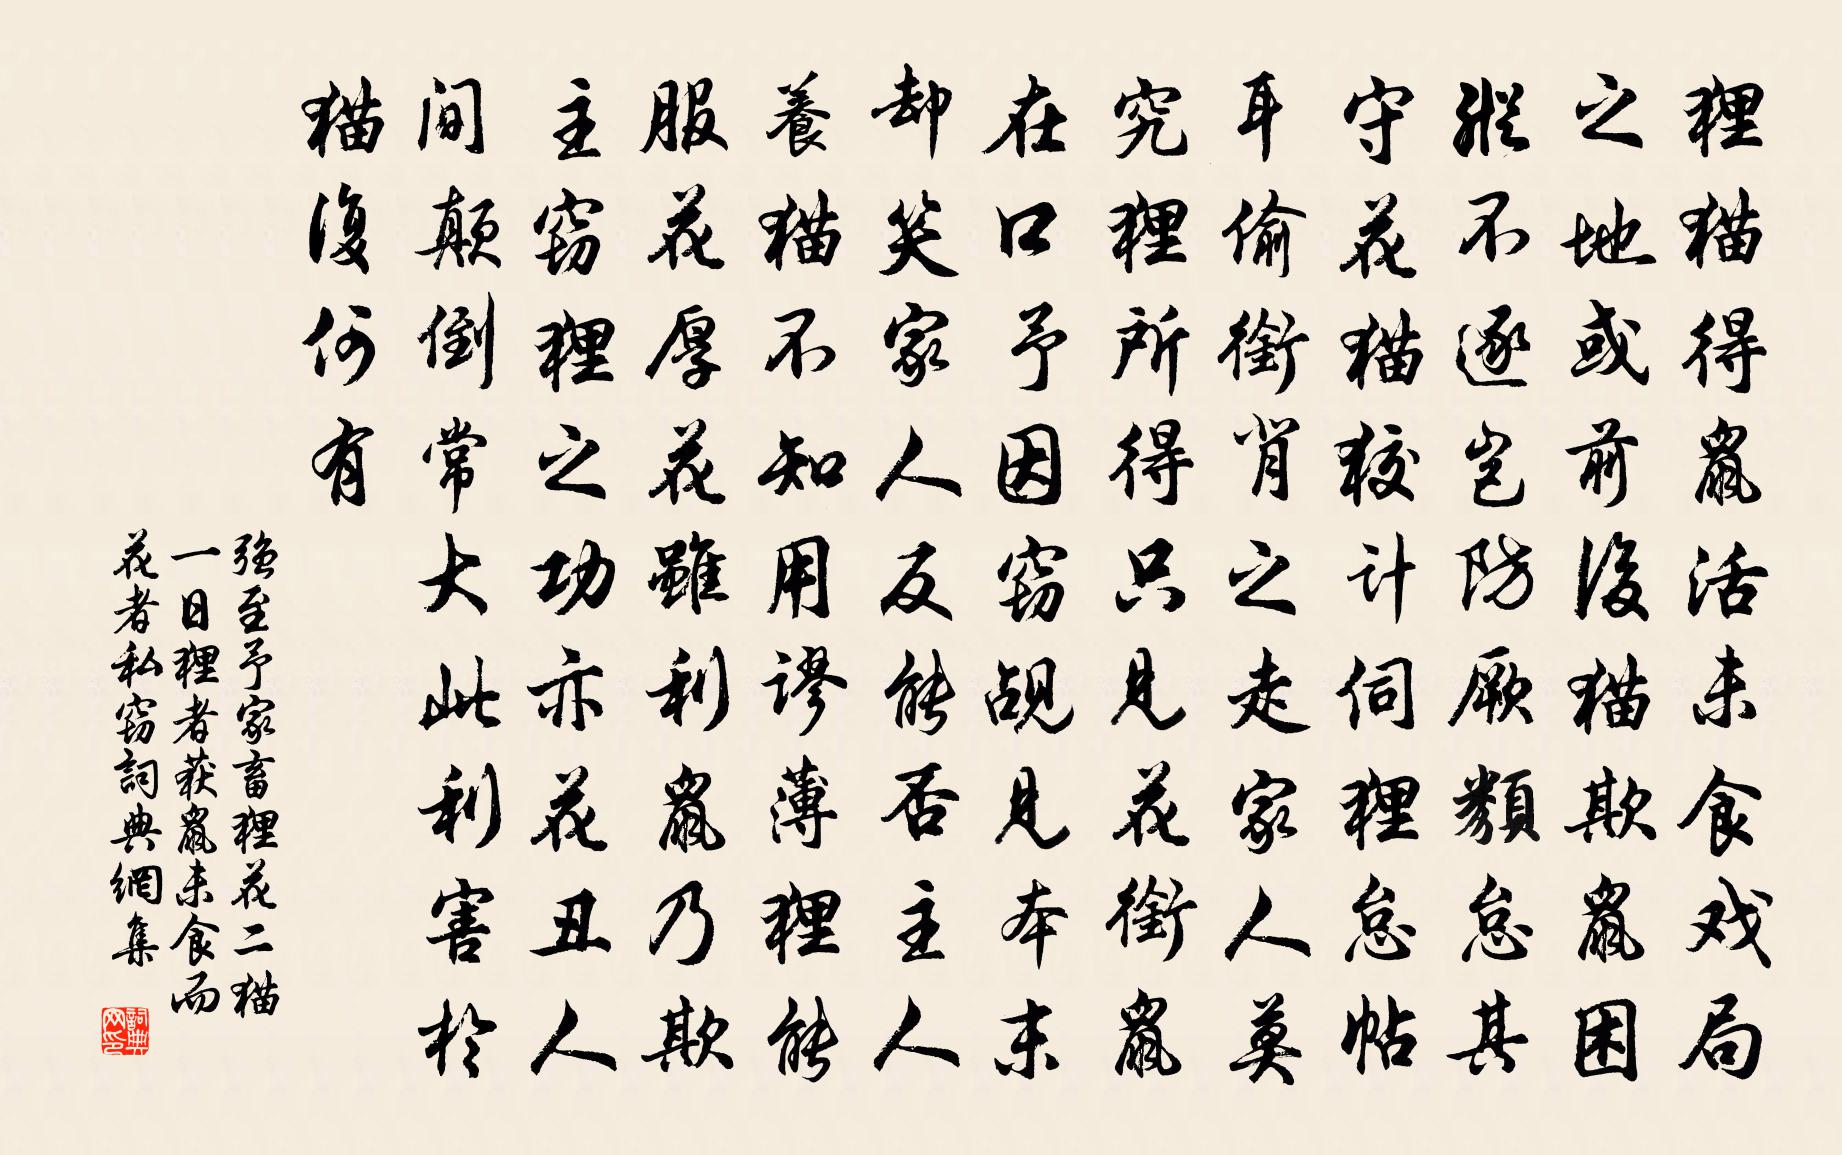 狸猫得鼠活未食戏局
之地或前後猫欺鼠困
縱不逐岂防厥類怠其
守花猫狡计伺狸怠帖
耳偷銜背之走家人莫
究狸所得只見花銜鼠
在口予因窃觇見本末
却笑家人反能否主人
養猫不知用谬薄狸能
服花厚花雖利鼠乃欺
主窃狸之功亦花丑人
间颠倒常大此利害於
猫復何有
強至予家畜狸花二猫
一日狸者获鼠未食而
花者私窃詞典網集
詞典网印